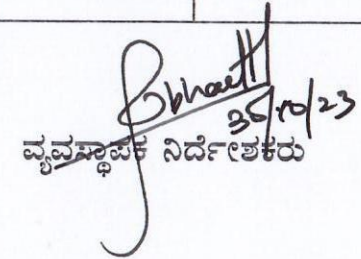 30/10/23
ವ್ಯವಸ್ಥಾಪಕ ನಿರ್ದೇಶಕರು